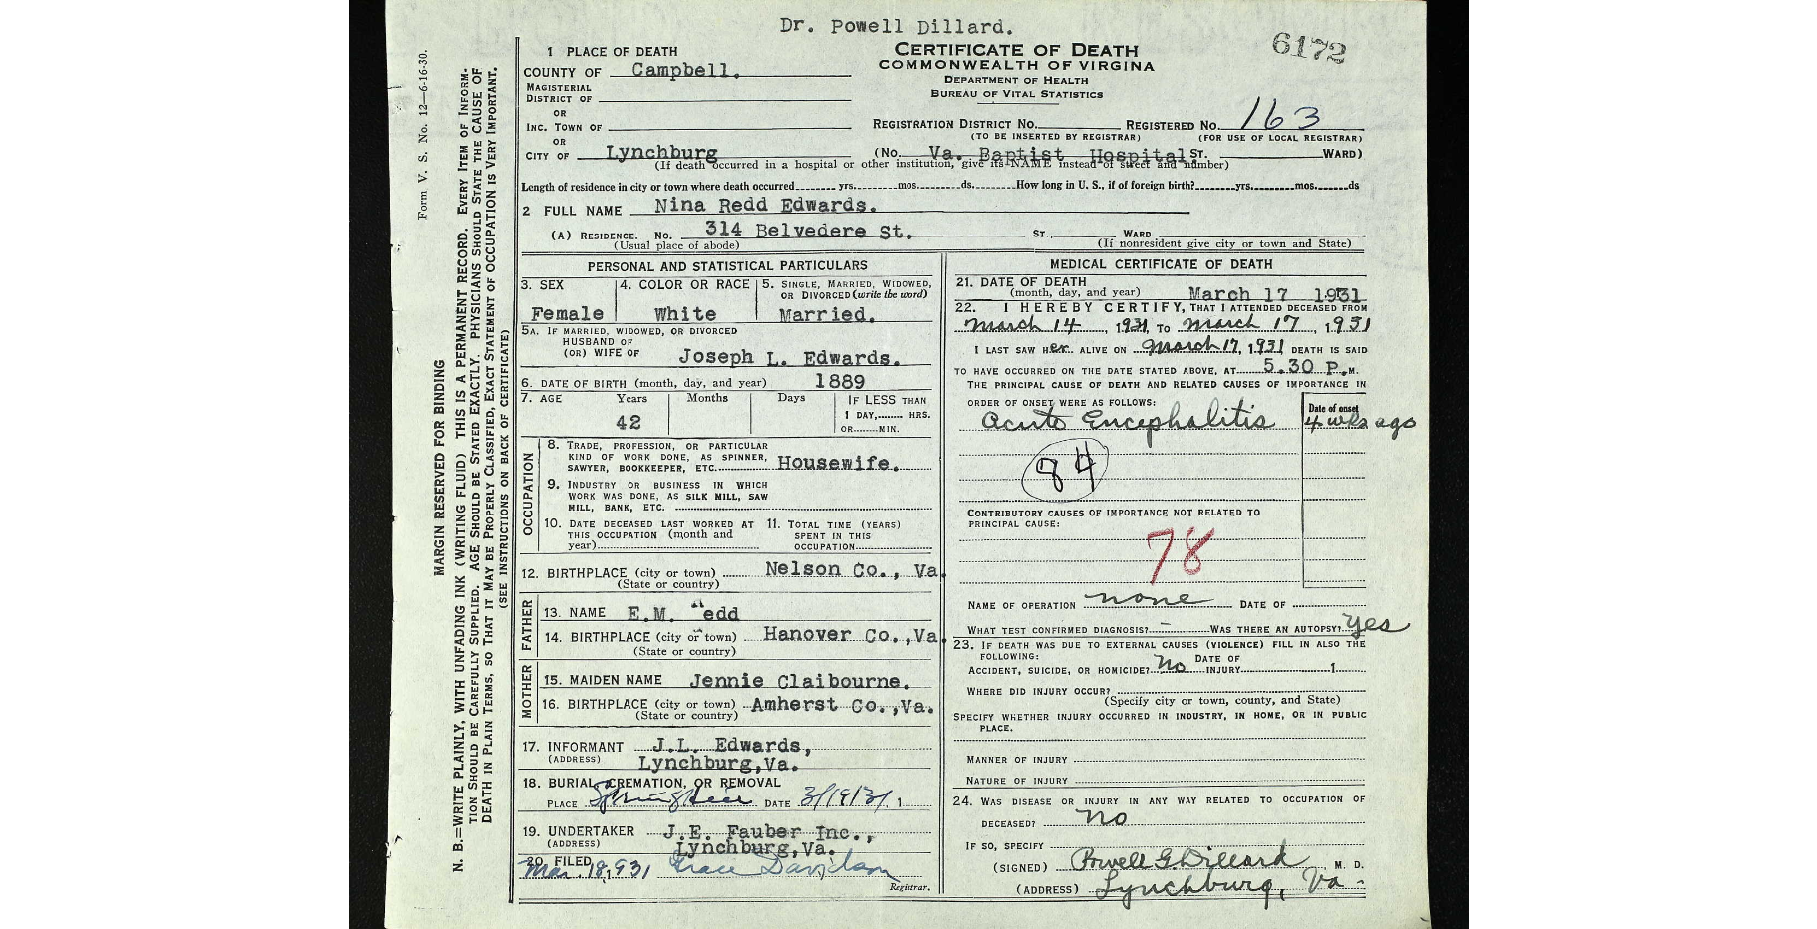 Dr. Powell Dillard.
6172
CERTIFICATE OF DEATH
COMMONWEALTH OF VIRGINIA
DEPARTMENT OF HEALTH
BUREAU OF VITAL STATISTICS
Form V. S. No. 12—6-16-30.
MARGIN RESERVED FOR BINDING
N. B.=WRITE PLAINLY, WITH UNFADING INK (WRITING FLUID) THIS IS A PERMANENT RECORD. EVERY ITEM OF INFORM-
TION SHOULD BE CAREFULLY SUPPLIED. AGE SHOULD BE STATED EXACTLY. PHYSICIANS SHOULD STATE THE CAUSE OF
DEATH IN PLAIN TERMS, SO THAT IT MAY BE PROPERLY CLASSIFIED, EXACT STATEMENT OF OCCUPATION IS VERY IMPORTANT.
(SEE INSTRUCTIONS ON BACK OF CERTIFICATE)
1 PLACE OF DEATH
COUNTY OF Campbell.
MAGISTERIAL
DISTRICT OF
OR
INC. TOWN OF
REGISTRATION DISTRICT No. REGISTERED No. 163
(TO BE INSERTED BY REGISTRAR) (FOR USE OF LOCAL REGISTRAR)
OR
CITY OF Lynchburg (No. Va. Baptist Hospital ST. WARD)
(If death occurred in a hospital or other institution, give its NAME instead of street and number)
Length of residence in city or town where death occurred yrs. mos. ds. How long in U. S., if of foreign birth? yrs. mos. ds
2 FULL NAME Nina Redd Edwards.
(A) RESIDENCE. No. 314 Belvedere St. ST. WARD
(Usual place of abode) (If nonresident give city or town and State)
PERSONAL AND STATISTICAL PARTICULARS
3. SEX 4. COLOR OR RACE 5. SINGLE, MARRIED, WIDOWED,
OR DIVORCED (write the word)
Female White Married.
5A. IF MARRIED, WIDOWED, OR DIVORCED
HUSBAND OF
(OR) WIFE OF Joseph L. Edwards.
6. DATE OF BIRTH (month, day, and year) 1889
7. AGE Years Months Days IF LESS THAN
1 DAY, HRS.
42 OR MIN.
OCCUPATION
8. TRADE, PROFESSION, OR PARTICULAR
KIND OF WORK DONE, AS SPINNER,
SAWYER, BOOKKEEPER, ETC. Housewife.
9. INDUSTRY OR BUSINESS IN WHICH
WORK WAS DONE, AS SILK MILL, SAW
MILL, BANK, ETC.
10. DATE DECEASED LAST WORKED AT 11. TOTAL TIME (YEARS)
THIS OCCUPATION (month and SPENT IN THIS
year) OCCUPATION
12. BIRTHPLACE (city or town) Nelson Co., Va.
(State or country)
FATHER
13. NAME E.M. edd
14. BIRTHPLACE (city or town) Hanover Co.,Va.
(State or country)
MOTHER
15. MAIDEN NAME Jennie Claibourne.
16. BIRTHPLACE (city or town) Amherst Co.,Va.
(State or country)
17. INFORMANT J.L. Edwards,
(ADDRESS) Lynchburg,Va.
18. BURIAL, CREMATION, OR REMOVAL
PLACE Spring Hill DATE 3/19/31 1
19. UNDERTAKER J.E. Fauber Inc.,
(ADDRESS) Lynchburg,Va.
20. FILED Mar. 18, 1931 Grace Davidson
Registrar.
MEDICAL CERTIFICATE OF DEATH
21. DATE OF DEATH
(month, day, and year) March 17 1931
22. I HEREBY CERTIFY, THAT I ATTENDED DECEASED FROM
March 14, 1931, TO March 17, 1931
I LAST SAW HER ALIVE ON March 17, 1931 DEATH IS SAID
TO HAVE OCCURRED ON THE DATE STATED ABOVE, AT 5.30 P.M.
THE PRINCIPAL CAUSE OF DEATH AND RELATED CAUSES OF IMPORTANCE IN
ORDER OF ONSET WERE AS FOLLOWS: Date of onset
Acute Encephalitis 4 wks ago
84
CONTRIBUTORY CAUSES OF IMPORTANCE NOT RELATED TO
PRINCIPAL CAUSE:
78
NAME OF OPERATION none DATE OF
WHAT TEST CONFIRMED DIAGNOSIS? – WAS THERE AN AUTOPSY? yes
23. IF DEATH WAS DUE TO EXTERNAL CAUSES (VIOLENCE) FILL IN ALSO THE
FOLLOWING: DATE OF
ACCIDENT, SUICIDE, OR HOMICIDE? No INJURY 1
WHERE DID INJURY OCCUR?
(Specify city or town, county, and State)
SPECIFY WHETHER INJURY OCCURRED IN INDUSTRY, IN HOME, OR IN PUBLIC
PLACE.
MANNER OF INJURY
NATURE OF INJURY
24. WAS DISEASE OR INJURY IN ANY WAY RELATED TO OCCUPATION OF
DECEASED? No
IF SO, SPECIFY
(SIGNED) Powell G. Dillard M. D.
(ADDRESS) Lynchburg, Va.